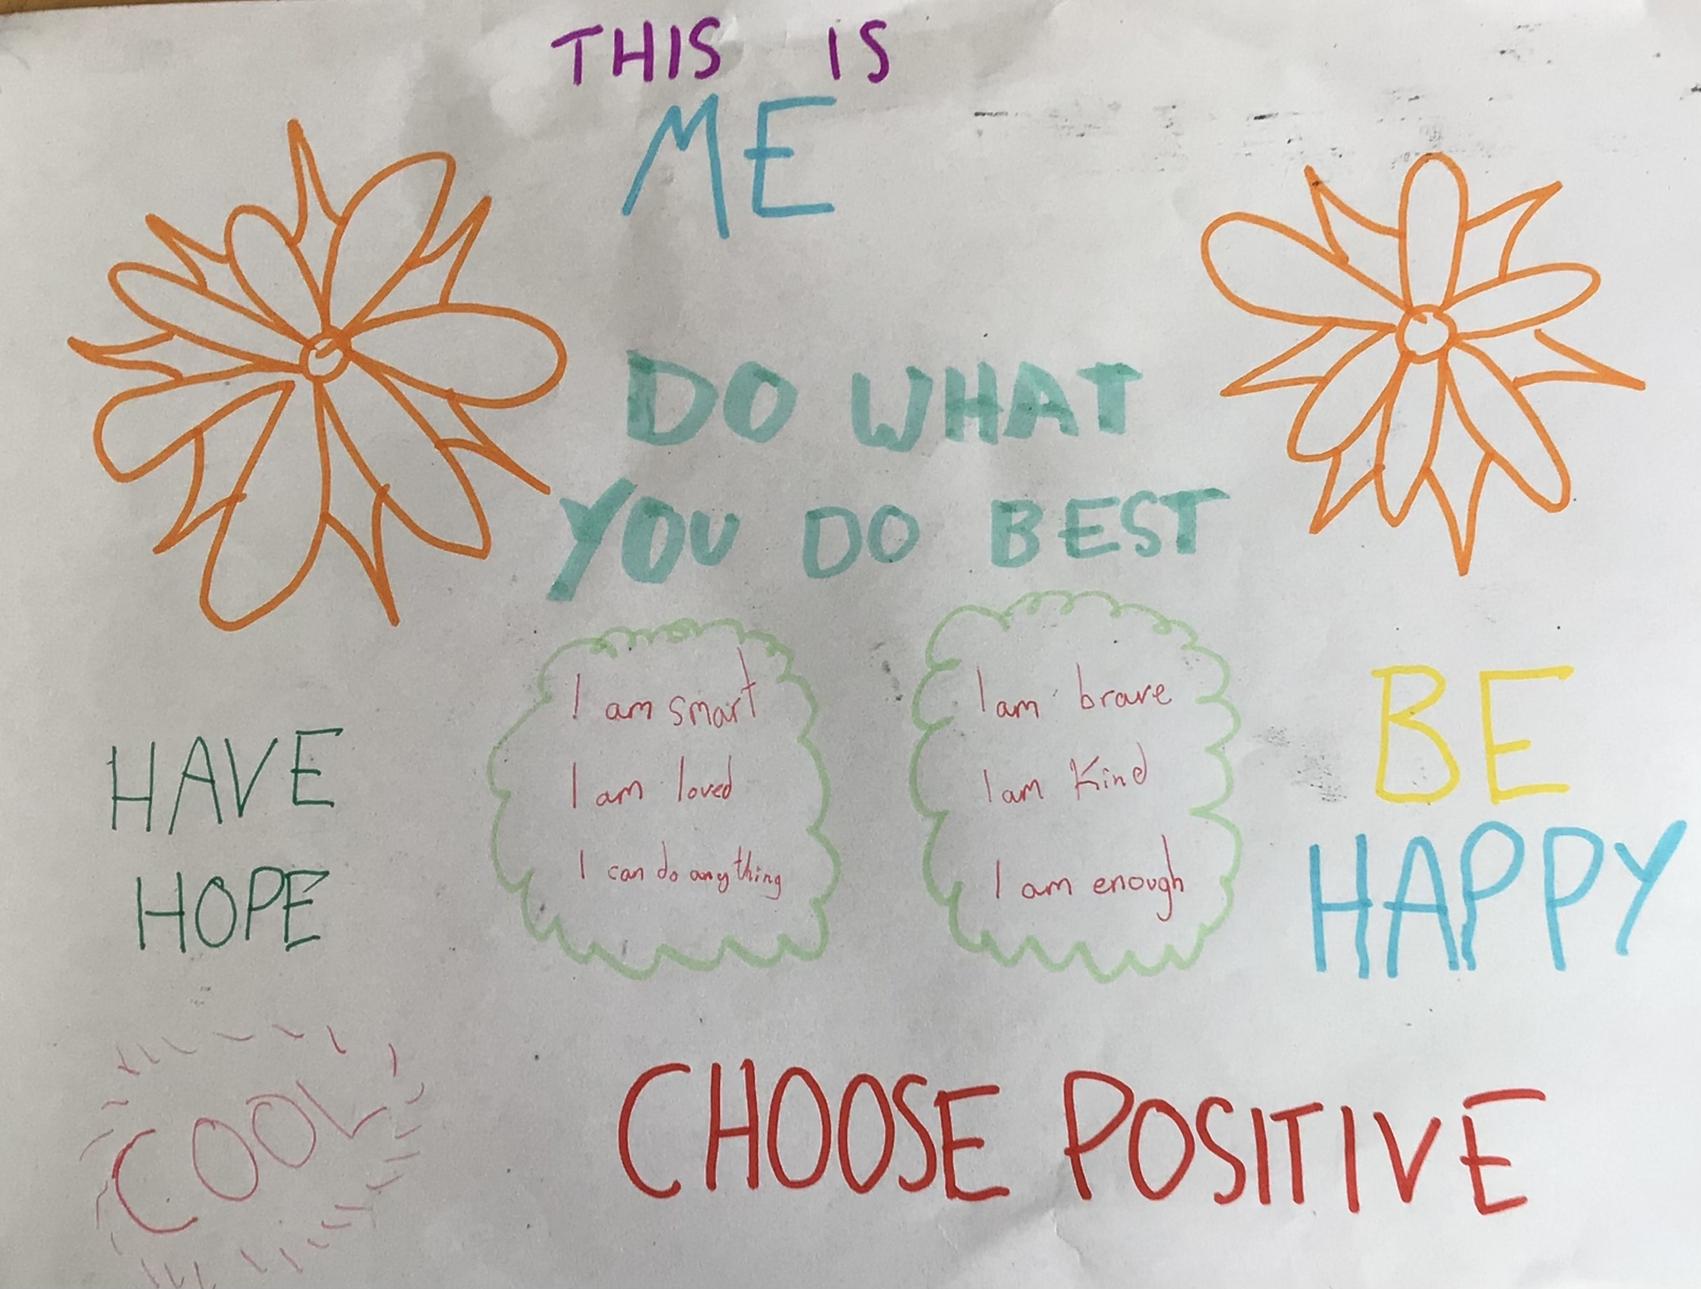 THIS IS
ME
DO WHAT
YOU DO BEST
I am smart
I am loved
I can do any thing
I am brave
I am Kind
I am enough
HAVE
HOPE
BE
HAPPY
COOL
CHOOSE POSITIVE